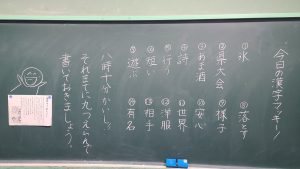 今日の漢字フッキー!
①氷
②県大会
③あま酒
④詩
⑤行う
⑥短い
⑦遊ぶ
⑧落とす
⑨様子
⑩安心
⑪世界
⑫洋服
⑬相手
⑭有名
八時十分かいし!
それまでに九つえらんで
書いておきましょう。